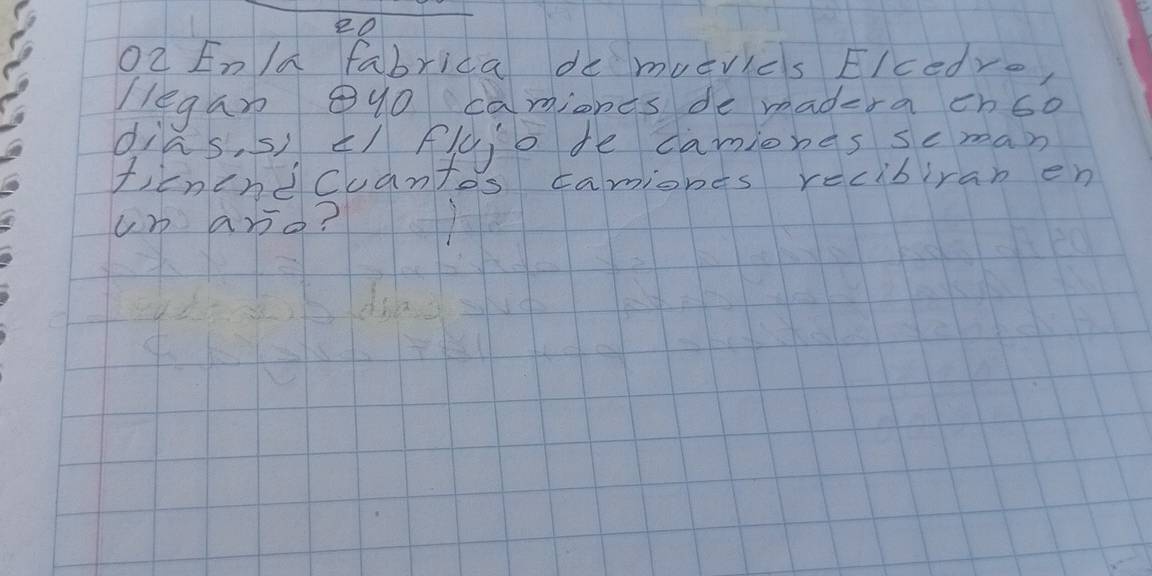 20
02 En la fabrica de muevles El cedro,
llegan 840 camiones de madera en 60
dias, si el flujo de camiones se man
tienene cuantos camiones recibiran en
un año?